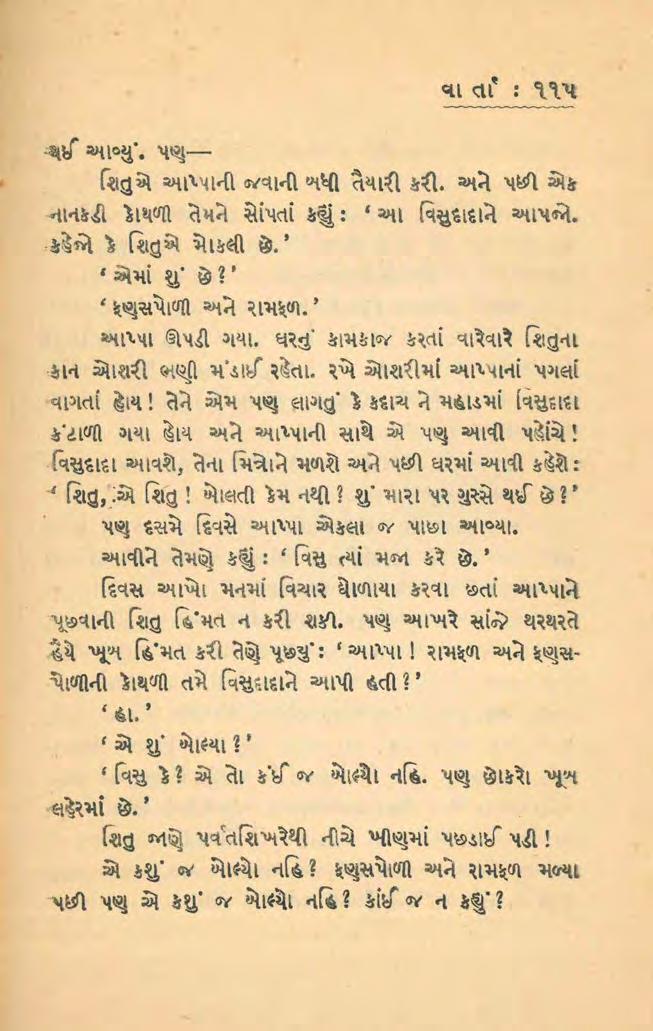 વાર્તા : ૧૧૫
થઈ આવ્યું. પણ—
શિતુએ આપ્પાની જવાની બધી તૈયારી કરી. અને પછી એક
નાનકડી કોથળી તેમને સોંપતાં કહ્યું : ‘ આ વિસુદાદાને આપજો.
કહેજો કે શિતુએ મોકલી છે.’
‘ એમાં શું છે ?’
‘ ફણસપોળી અને રામફળ.’
આપ્પા ઊપડી ગયા. ઘરનું કામકાજ કરતાં વારેવારે શિતુના
કાન ઓશરી ભણી મંડાઈ રહેતા. રખે ઓશરીમાં આપ્પાનાં પગલાં
વાગતાં હોય ! તેને એમ પણ લાગતું કે કદાચ ને મહાડમાં વિસુદાદા
કંટાળી ગયા હોય અને આપ્પાની સાથે એ પણ આવી પહોંચે !
વિસુદાદા આવશે, તેના મિત્રોને મળશે અને પછી ઘરમાં આવી કહેશે :
‘ શિતુ, એ શિતુ ! બોલતી કેમ નથી ? શું મારા પર ગુસ્સે થઈ છે ?’
પણ દસમે દિવસે આપ્પા એકલા જ પાછા આવ્યા.
આવીને તેમણે કહ્યું : ‘ વિસુ ત્યાં મજા કરે છે.’
દિવસ આખો મનમાં વિચાર ઘોળાયા કરવા છતાં આપ્પાને
પૂછવાની શિતુ હિંમત ન કરી શકી. પણ આખરે સાંજે થરથરતે
હૈયે ખૂબ હિંમત કરી તેણે પૂછ્યું : ‘ આપ્પા ! રામફળ અને ફણસ-
પોળીની કોથળી તમે વિસુદાદાને આપી હતી ?’
‘ હા.’
‘ એ શું બોલ્યા ?’
‘ વિસુ કે ? એ તો કંઈ જ બોલ્યો નહિ. પણ છોકરો ખૂબ
લહેરમાં છે.’
શિતુ જાણે પર્વતશિખરેથી નીચે ખીણમાં પછડાઈ પડી !
એ કશું જ બોલ્યો નહિ ? ફણસપોળી અને રામફળ મળ્યા
પછી પણ એ કશું જ બોલ્યો નહિ ? કાંઈ જ ન કહ્યું ?